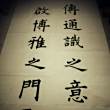 傳通識之意
啟博雅之門